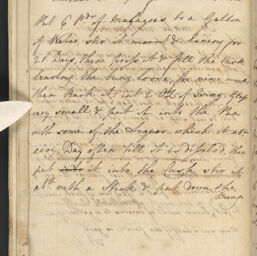 Put 6 Pds of Malagoes to a Gallon
of Water, stir it morng & Evening for
21 Days, then press it & fill the Cask
leaving the bung loose for nine
then rack it, cut 2 of Ising Glass
very small & put it into the Pan
with some of the Liquor which it
every Day often till it is disolved then
put into it into the Cask stir it
with a Stick & put down the
Bung